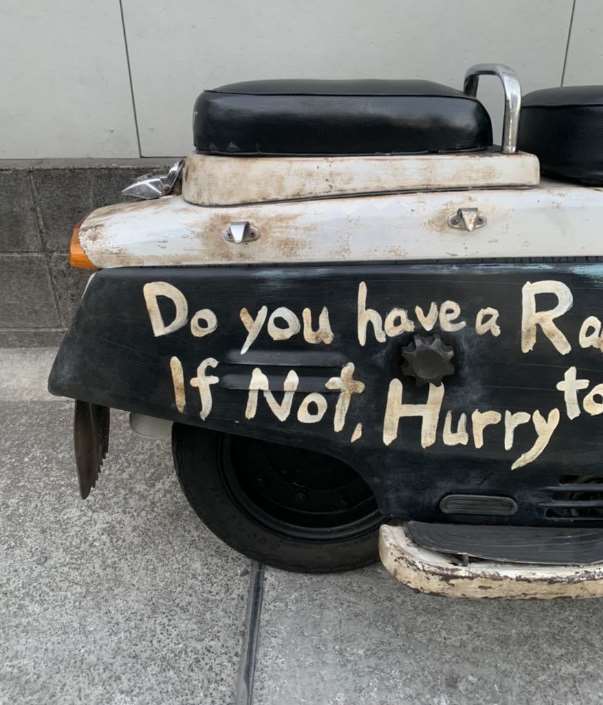 Do you have a Ra
If Not, Hurry to